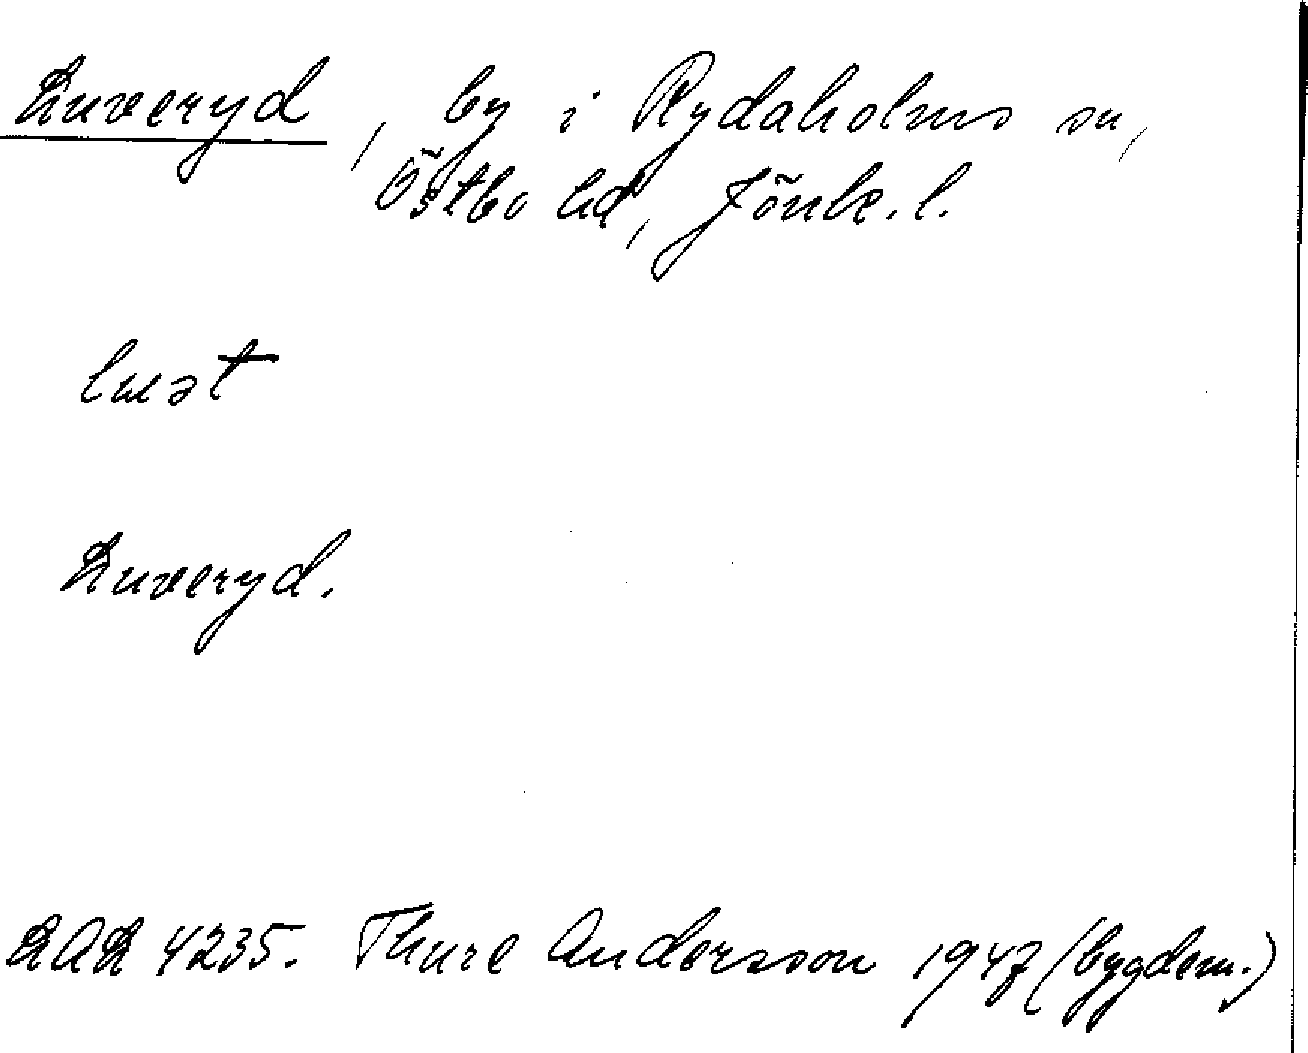 Luveryd, by i Rydaholms sn,
Östbo hd, Jönk. l.
luət
Luveryd.
LAL 4235. Thure Andersson 1947 (bygdem.)